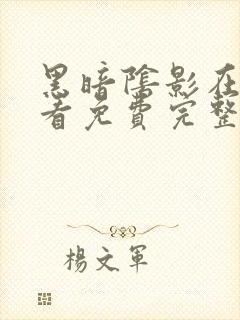 黑暗阴影在
看免费完整
杨文军